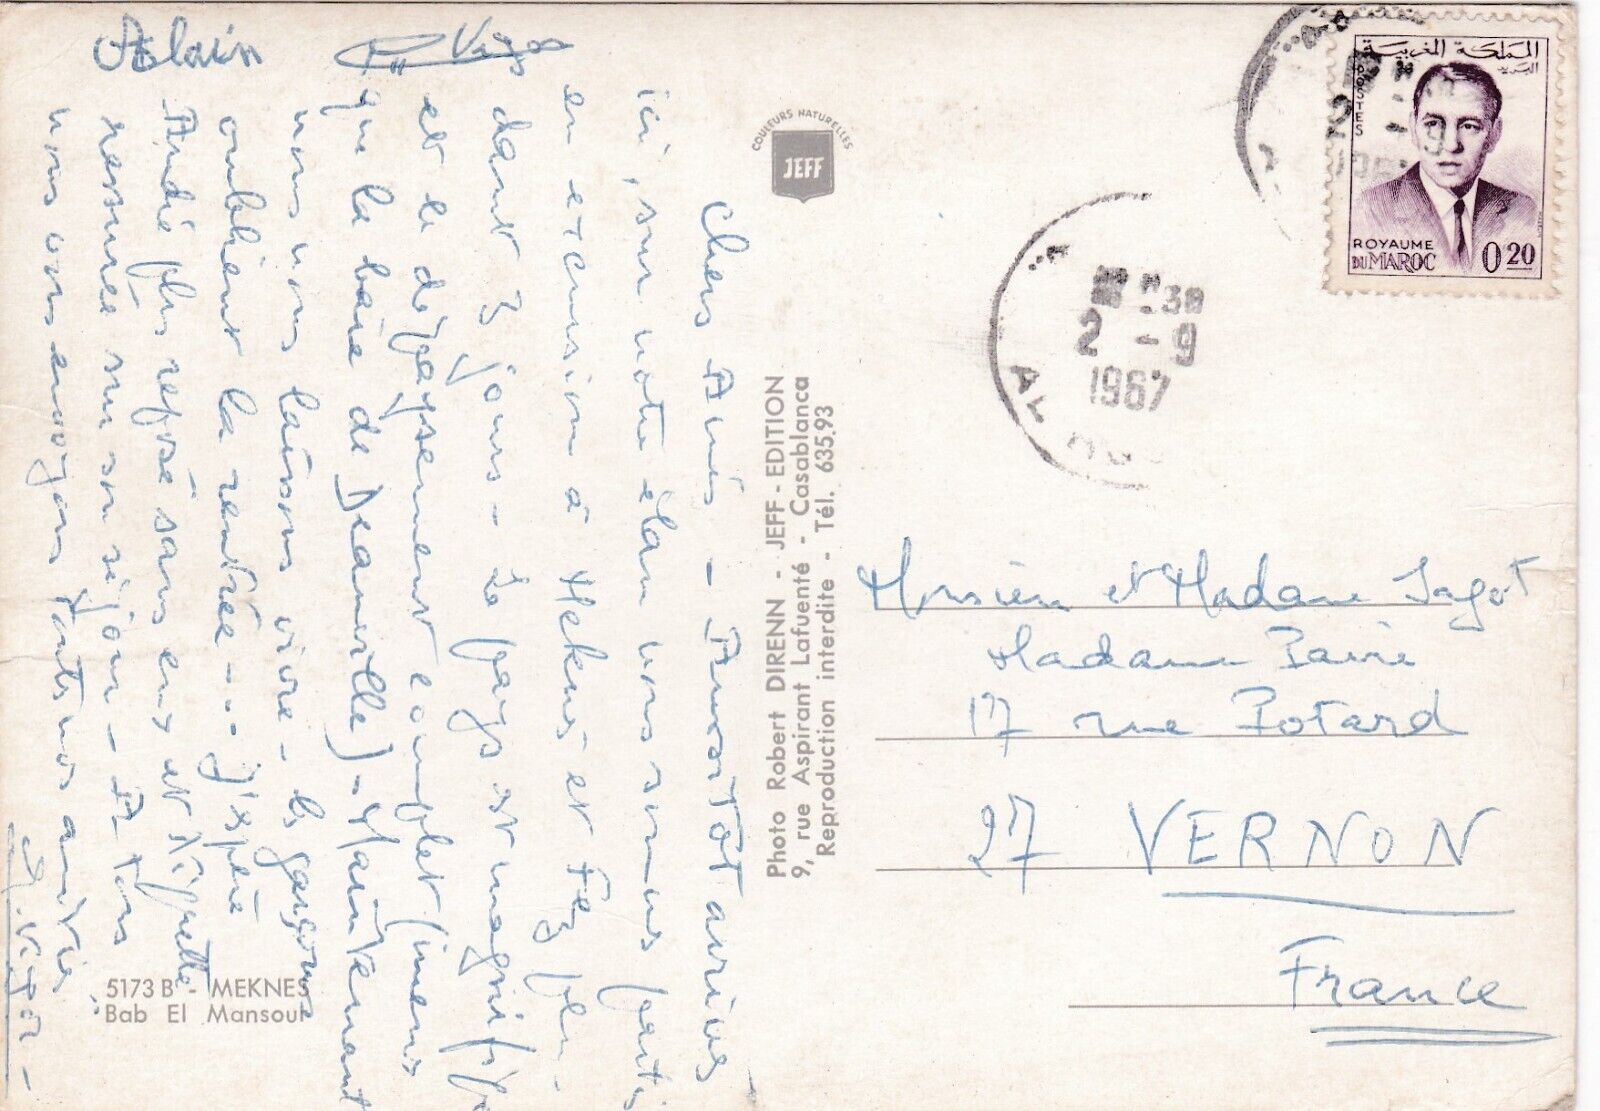 Chers Amis - Aussitôt arrivés
ici, sur notre élan nous sommes partis
en excursion à Meknes et Fez pen-
dant 3 jours - Le pays est magnifique
et le dépaysement complet (mieux
que la baie de Deauville) - Maintenant
nous nous laissons vivre - les garçons
oublient la rentrée --- J'espère
André plus reposé sans eux et
rassurée sur son séjour - A tous
nous vous envoyons toutes nos amitiés
Alain
COULEURS NATURELLES
JEFF
Photo Robert DIRENN - JEFF - EDITION
9, rue Aspirant Lafuenté - Casablanca
Reproduction interdite - Tél. 635.93
5173 B - MEKNES
Bab El Mansour
المملكة المغربية
البريد
POSTES
ROYAUME
DU MAROC
0.20
2 - 9
1967
Monsieur et Madame Jagot
Madame
17 rue Potard
27 VERNON
France